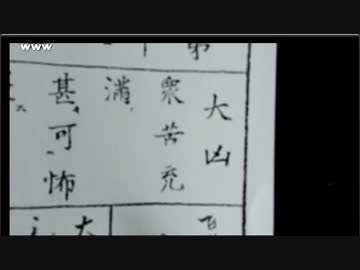 www
第
大凶
衆苦充
満
甚可怖
大